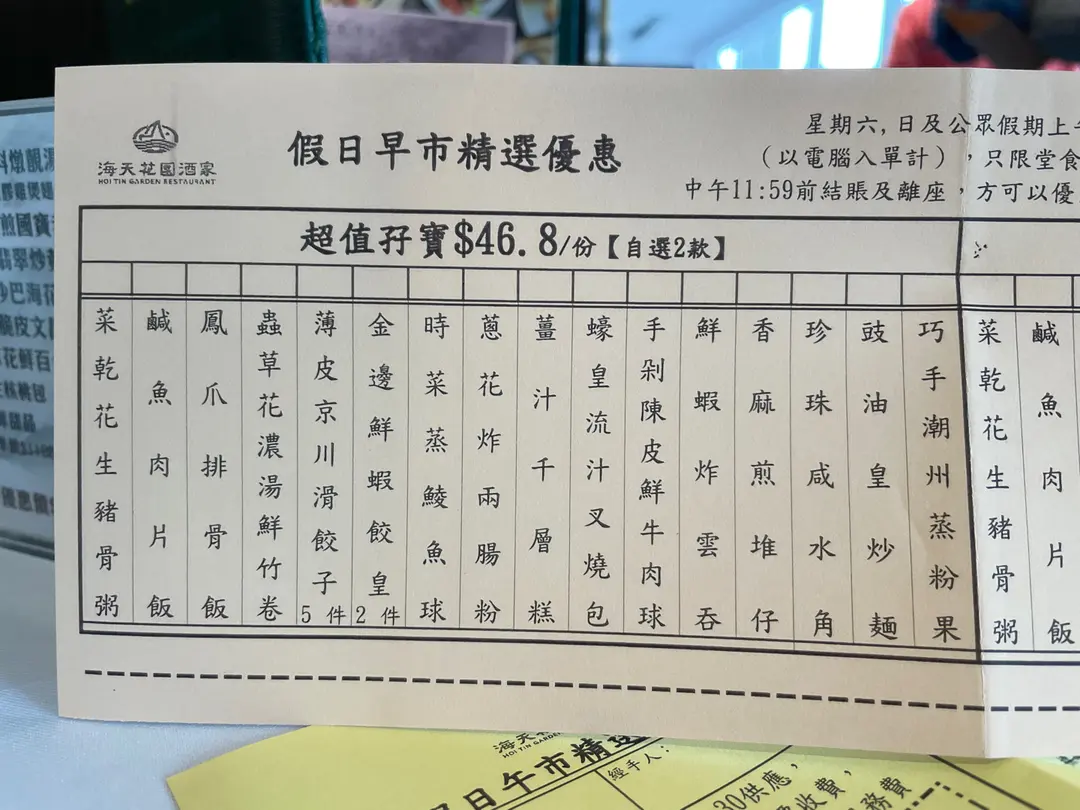 海天花園酒家
HOI TIN GARDEN RESTAURANT
假日早市精選優惠
星期六,日及公眾假期上午
(以電腦入單計),只限堂食
中午11:59前結賬及離座,方可以優
超值孖寶$46.8/份【自選2款】
菜乾花生豬骨粥
鹹魚肉片飯
鳳爪排骨飯
蟲草花濃湯鮮竹卷
薄皮京川滑餃子5件
金邊鮮蝦餃皇2件
時菜蒸鯪魚球
蔥花炸兩腸粉
薑汁千層糕
蠔皇流汁叉燒包
手剁陳皮鮮牛肉球
鮮蝦炸雲吞
香麻煎堆仔
珍珠咸水角
豉油皇炒麵
巧手潮州蒸粉果
菜乾花生豬骨粥
鹹魚肉片飯
海天花
HOI TIN GARDEN
假日午市精選
經手人:
30供應,
收費,
務費